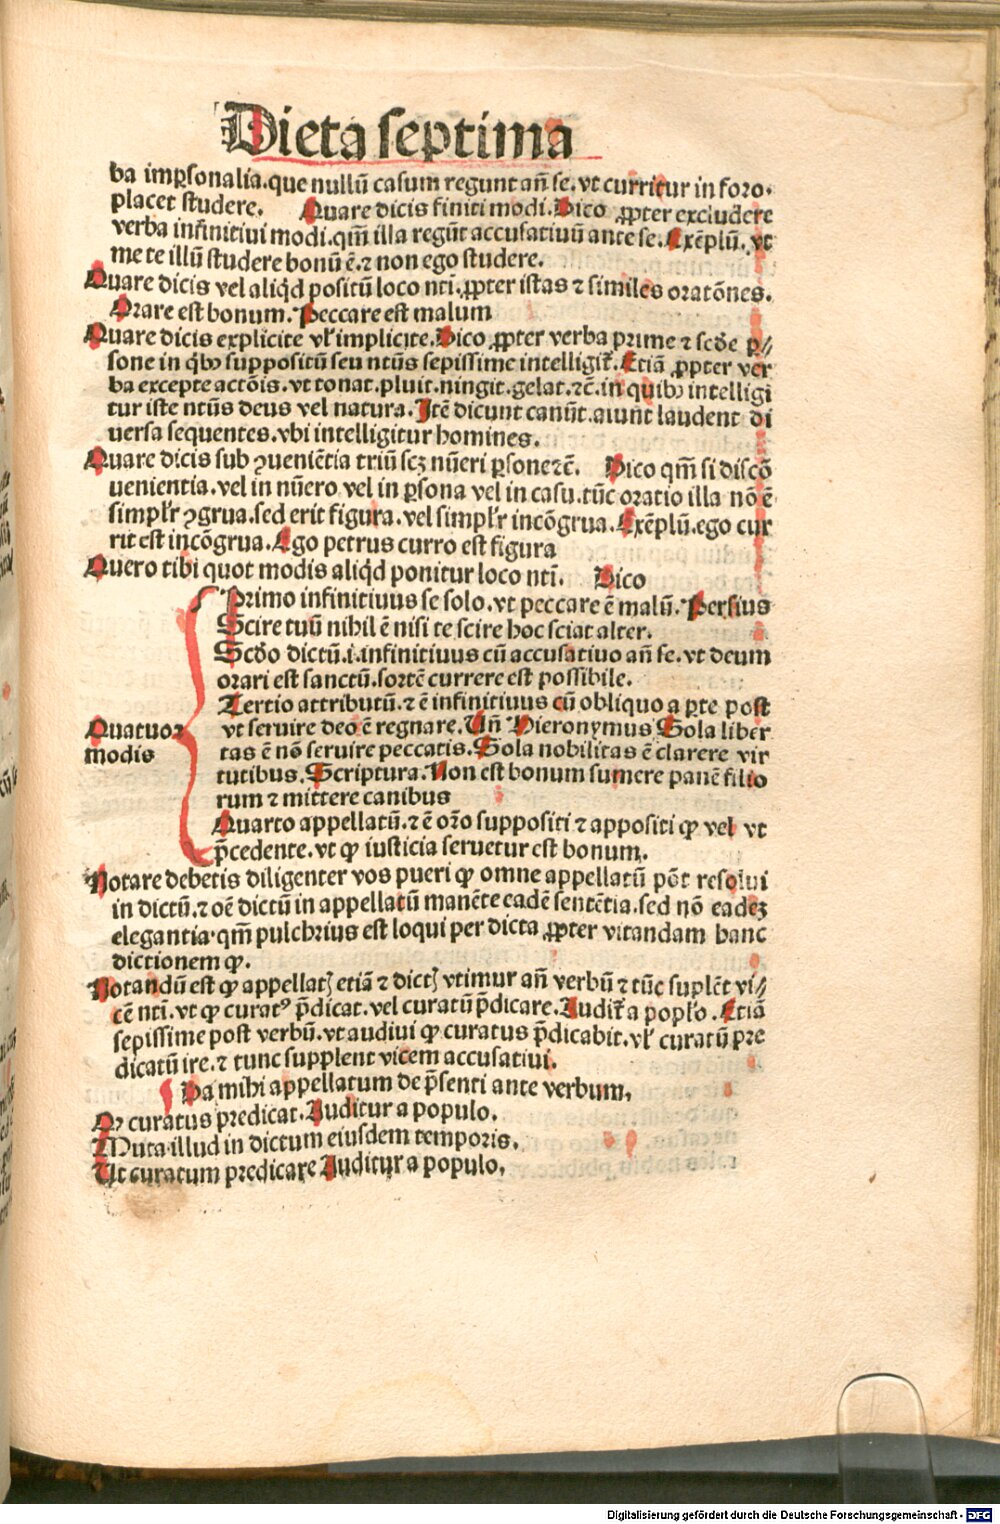 Dieta septima
ba imp̲sonalia.que nullū casum regunt an̄ se.vt curritur in foro.
placet studere. Quare dicis finiti modi.Dico ꝓpter excludere
verba infinitiui modi.qm̄ illa regūt accusatiuū ante se.Exēplū.vt
me te illū studere bonū ē.⁊ non ego studere.
Quare dicis vel aliqd̓ positū loco nti̅.ꝓpter istas ⁊ similes oratōnes.
Orare est bonum.Peccare est malum
Quare dicis explicite vl̓ implicite.Dico ꝓpter verba prime ⁊ scd̓e ꝑ⸗
sone in qb̓ꝰ suppositū seu ntūs sepissime intelligit̓.Etiā ꝓpter ver
ba excepte actōis.vt tonat.pluit.ningit.gelat.⁊c̄.in quibꝰ intelligi
tur iste ntūs deus vel natura.Itē dicunt canūt.aiunt laudent di
uersa sequentes.vbi intelligitur homines.
Quare dicis sub ꝯueniētia triū scꝫ nūeri ꝑsone⁊c̄. Dico qm̄ si discō
uenientia.vel in nūero vel in ꝑsona vel in casu.tūc oratio illa nō ē
simpl̓r ꝯgrua.sed erit figura.vel simpl̓r incōgrua.Exēplū.ego cur
rit est incōgrua.Ego petrus curro est figura
Quero tibi quot modis aliqd̓ ponitur loco nti̅. Dico
Primo infinitiuus se solo.vt peccare ē malū.Persius
Scire tuū nihil ē nisi te scire hoc sciat alter.
Scd̓o dictū.i.infinitiuus cū accusatiuo an̄ se.vt deum
orari est sanctū.sortē currere est possibile.
Tertio attributū.⁊ ē infinitiuus cū obliquo a ꝑte post
vt seruire deo ē regnare.Vn̄ Hieronymus Sola liber
tas ē nō seruire peccatis.Sola nobilitas ē clarere vir
tutibus.Scriptura.Non est bonum sumere panē filio
rum ⁊ mittere canibus
Quarto appellatū.⁊ ē or̄o suppositi ⁊ appositi ꝙ vel vt
p̄cedente.vt ꝙ iusticia seruetur est bonum.
Quatuor
modis
Notare debetis diligenter vos pueri ꝙ omne appellatū pōt resolui
in dictū.⁊ oē dictū in appellatū manēte eadē sentētia.sed nō eadeꝫ
elegantia.qm̄ pulchrius est loqui per dicta ꝓpter vitandam hanc
dictionem ꝙ.
Notandū est ꝙ appellatꝭ etiā ⁊ dictꝭ vtimur an̄ verbū ⁊ tūc suplēt vi⸗
cē nti̅.vt ꝙ curatꝰ p̄dicat.vel curatū p̄dicare.Audit̓ a popl̓o.Etiā
sepissime post verbū.vt audiui ꝙ curatus p̄dicabit.vl̓ curatū pre
dicatū ire.⁊ tunc supplent vicem accusatiui.
Da mihi appellatum de p̄senti ante verbum,
Qꝛ curatus predicat.Auditur a populo.
Muta illud in dictum eiusdem temporis.
Ut curatum predicare Auditur a populo,
Digitalisierung gefördert durch die Deutsche Forschungsgemeinschaft - DFG